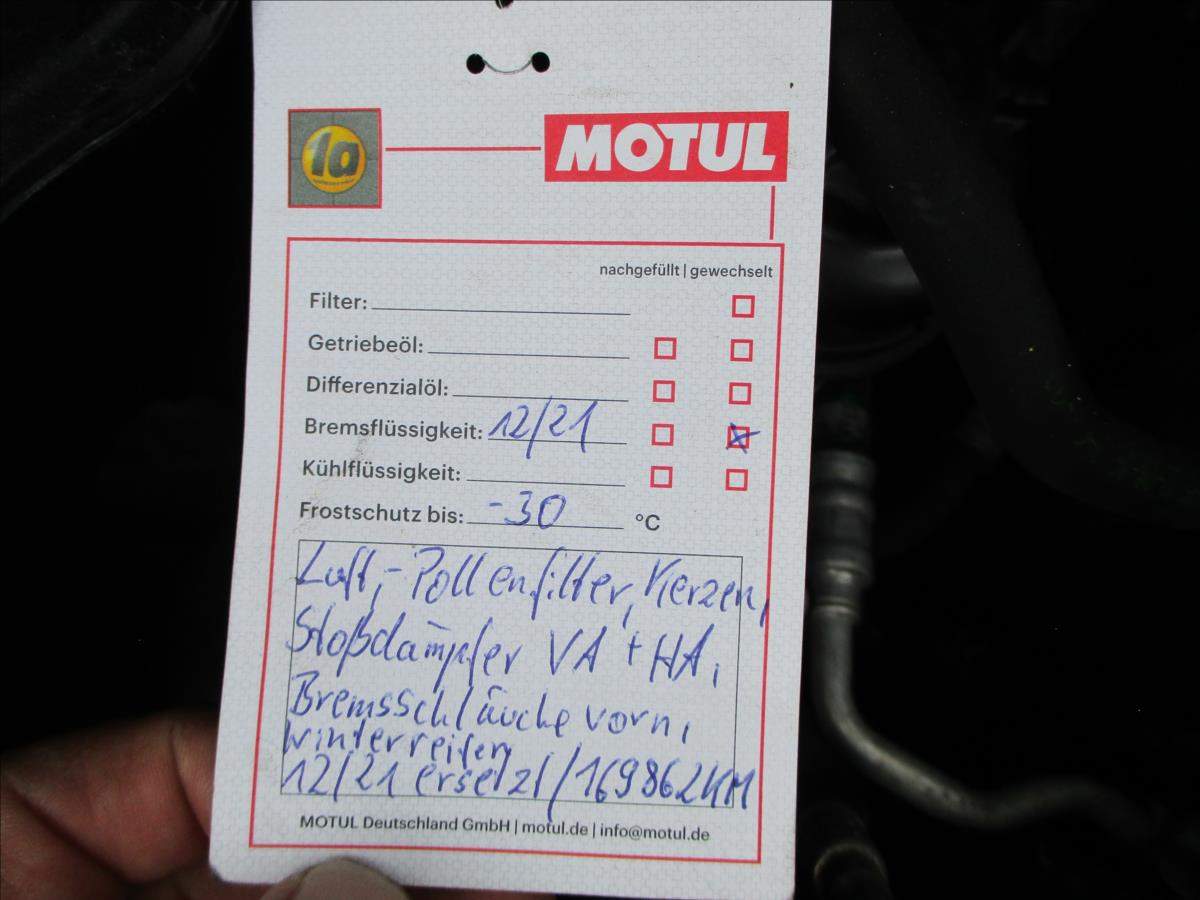 1a
MOTUL
nachgefüllt | gewechselt
Filter:
Getriebeöl:
Differenzialöl:
Bremsflüssigkeit: 12/21
Kühlflüssigkeit:
Frostschutz bis: -30 °C
Luft,-Pollenfilter, Kerzen,
Stoßdämpfer VA + HA,
Bremsschläuche vorn,
Winterreifen
12/21 ersetzt/169862KM
MOTUL Deutschland GmbH | motul.de | info@motul.de